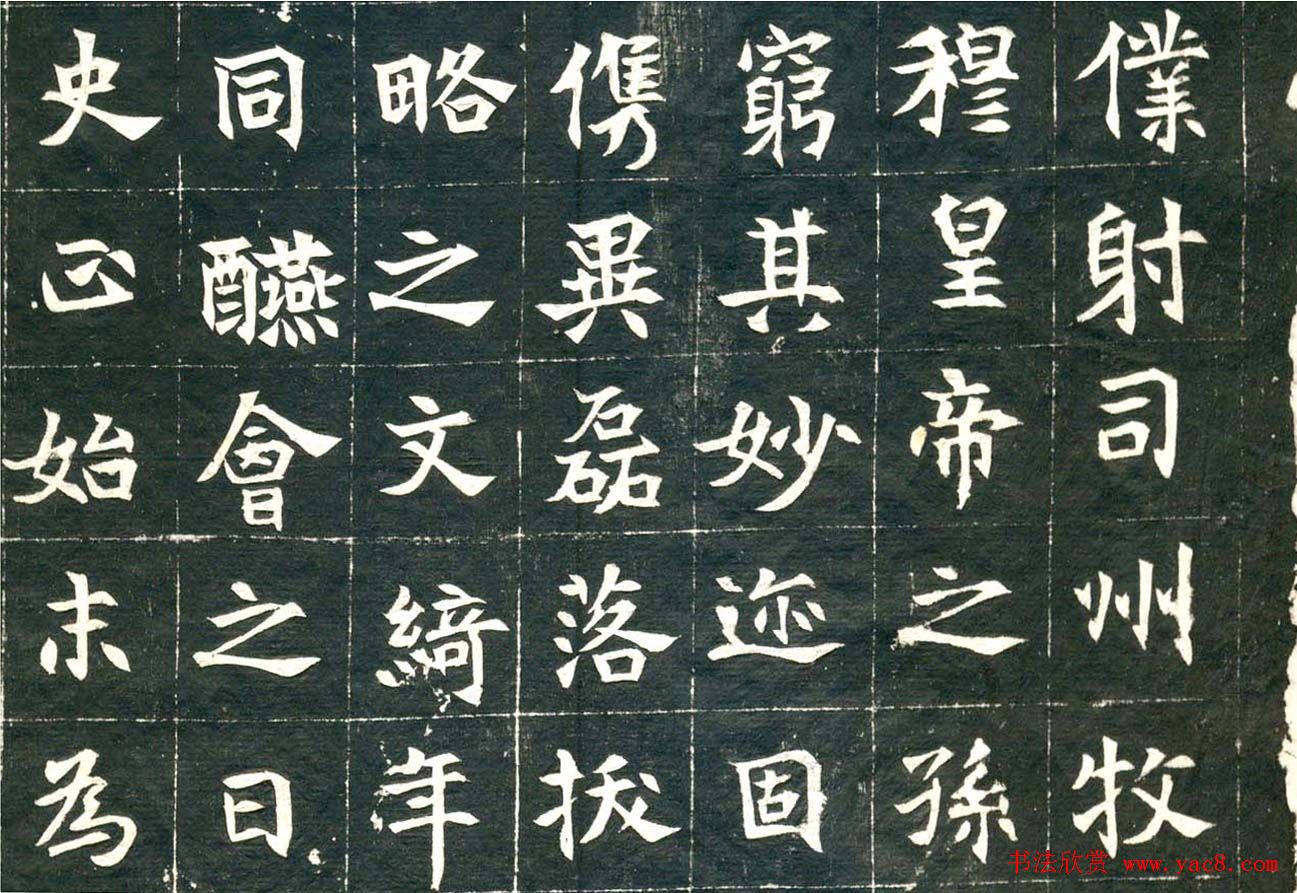 僕射司州牧
穆皇帝之孫
窮其妙迹固
儁異磊落拔
略之文綺年
同醼會之日
史正始末為
书法欣赏 www.yac8.com